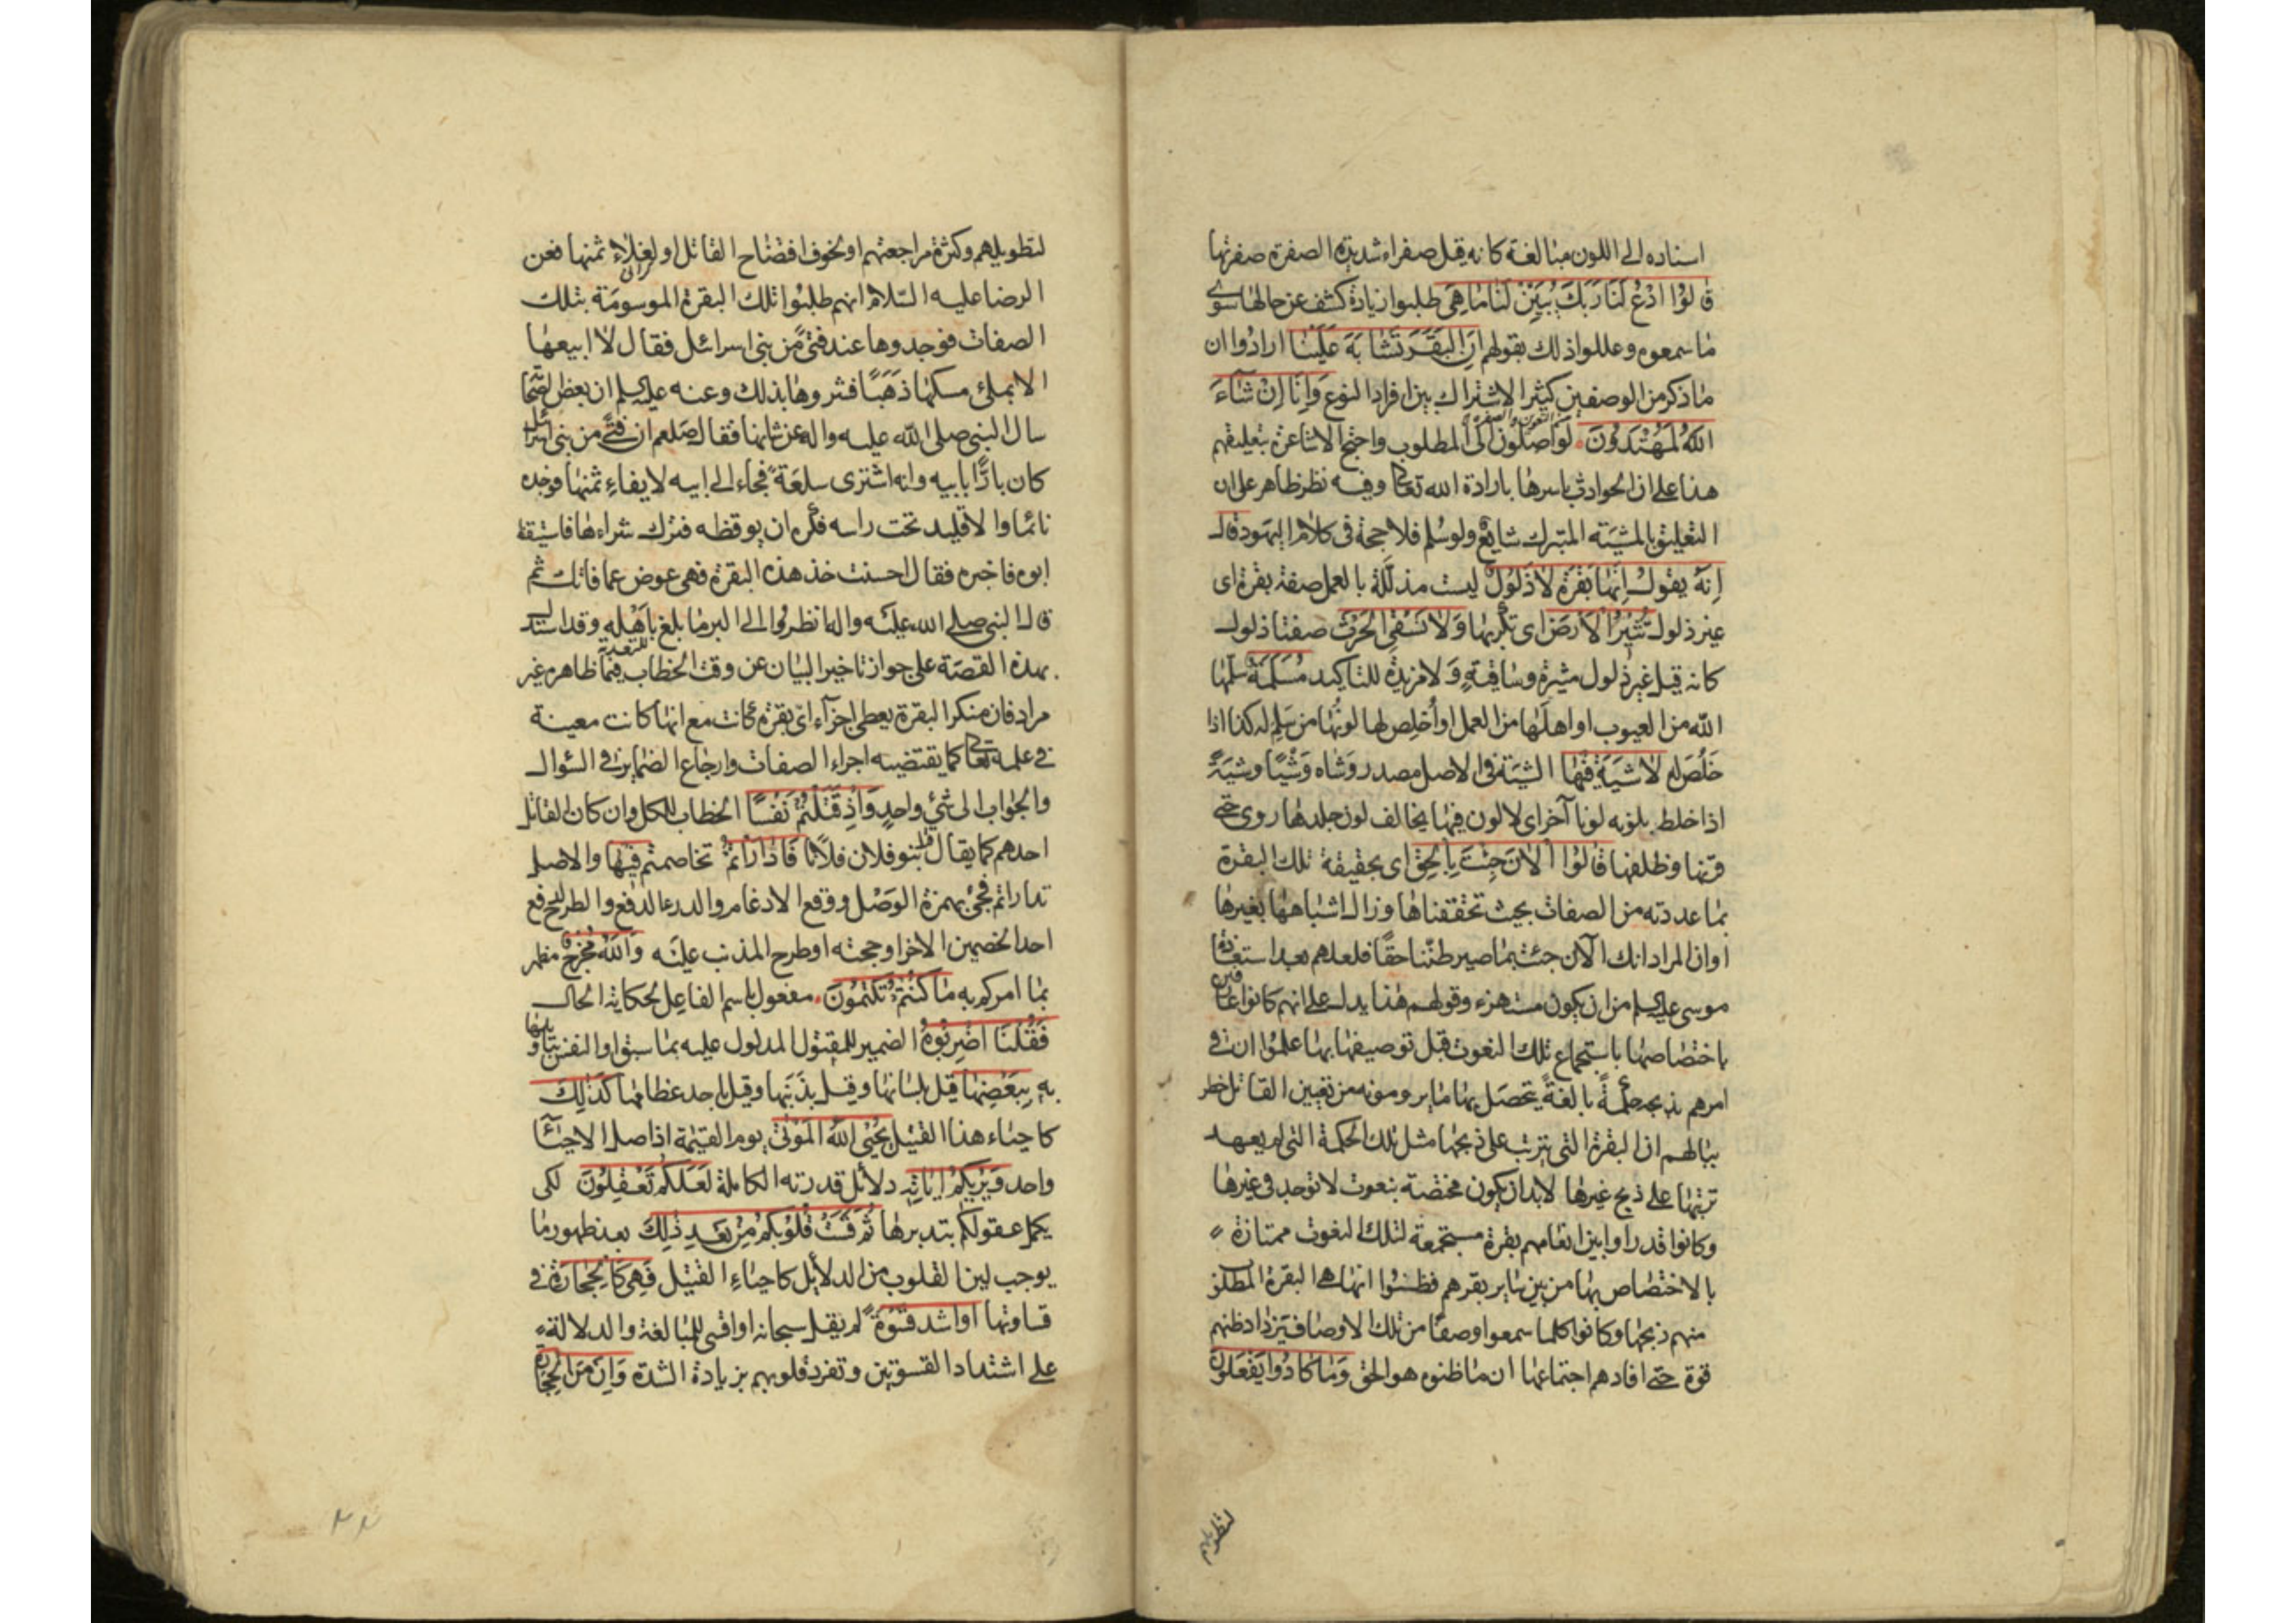 اسناده الى اللون مبالغة كانه قيل صفراء شديدة الصفرة صفرتها
قالوا ادْعُ لَنَا رَبَّكَ يُبَيِّنْ لَنَا مَا هِيَ طلبوا زيادة كشف عن حالها سوى
ما سمعوه وعللوا ذلك بقولهم اِنَّ البَقَرَ تَشَابَهَ عَلَيْنَا ارادوا ان
ما ذكر من الوصفين كثير الاشتراك بين افراد النوع وَاِنَّا اِنْ شَآءَ
اللّهُ لَمُهْتَدُونَ لواصلون الى المطلوب واحتج الاشاعرة بتعليقهم
هذا على ان الحوادث باسرها بارادة الله تعالى وفيه نظر ظاهر على ان
التعليق بالمشيته المتبرك شايع ولو سُلم فلا حجة فى كلام اليهود قال
اِنَّهُ يَقُولُ اِنَّهَا بَقَرَةٌ لَا ذَلُولٌ ليست مذللة بالعمل صفة بقرة اى
غير ذلول تُثِيرُ الْاَرْضَ اى تكربها وَلَا تَسْقِى الْحَرْثَ صفتا ذلول
كانه قيل غير ذلول مثيرة وساقية وَلا مزيدة للتاكيد مُسَلَّمَةٌ سلّمها
اللّه من العيوب او اهلها من العمل او اُخلِص لها لونُها من سَلِم له كذا اذا
خَلُصَ له لَا شِيَةَ فِيهَا الشية فى الاصل مصدر وَشاه وَشْيًا وشِيَةً
اذا خلط بلونه لونا آخر اى لا لون فيها يخالف لون جلدها روى حتى
قرنها وظلفها قالُوا الْآنَ جِئْتَ بِالْحَقِّ اى بحقيقة تلك البقرة
بما عددته من الصفات بحيث تحققناها وزال اشتباهها بغيرها
اوان المراد انك الآن جئت بما صير ظننا حقًا فلعلهم بعد استعاذة
موسى عليه السلم من ان يكون مستهزء وقولهم هذا يدل على انهم كانوا عارفين
باختصاصها باستجماع تلك النعوت قبل توصيفها بها علموا ان فى
امرهم بذبحه حكمةً بالغةً يحصل بها ما يرومونه من تعيين القاتل خطر
ببالهم ان البقرة التى يترتب على ذبحها مثل تلك الحكمة التى لم يعهد
ترتبها على ذبح غيرها لابد ان يكون مختصة بنعوت لا توجد فى غيرها
وكانوا قد راوا بين انعامهم بقرة مستجمعة لتلك النعوت ممتازة
بالاختصاص بها من بين ساير بقرهم فظنوا انها هى البقرة المطلو
منهم ذبحها وكانوا كلما سمعوا وصفًا من تلك الاوصاف يزداد ظنهم
قوة حتى افادهم اجتماعها ان ما ظنوه هو الحق وَمَا كَادُوا يَفْعَلُونَ
لتطويلهم
لتطويلهم وكثرة مراجعتهم او لخوف افتضاح القاتل او لغلاء ثمنها فعن
الرضا عليه السّلام انهم طلبوا تلك البقرة الموسومة بتلك
الصفات فوجدوها عند فتىً من بنى اسرائل فقال لا ابيعها
الا بملئ مسكها ذَهَبًا فشروها بذلك وعنه عليه السلم ان بعض الصحا
سال النبى صلى اللّه عليه واله عن شانها فقال صلعم ان فتىً من بنى اسرائيل
كان بارًّا بابيه وانه اشترى سلعَةً فجاء الى ابيه لايفاءِ ثمنها فوجده
نائما والاقليد تحت راسه فكره ان يوقظه فترك شراءها فاستيقظ
ابوه فاخبره فقال احسنت خذ هذه البقرة فهى عوض عما فاتك ثم
قال النبى صلى الله عليه واله انظروا الى البر ما بلغ باَهْلِهِ وقد استدل
بهذه القصّة على جواز تاخير البيان عن وقت الخطاب فيما ظاهره غير
مراد فان منكر البقرة يعطى اجزآء اىّ بقرة كانت مع انها كانت معينة
فى علمه تعالى كما يقتضيه اجراء الصفات وارجاع الضماير فى السؤال
والجواب الى شئ واحدٍ وَاِذْ قَتَلْتُمْ نَفْسًا الخطاب للكل وان كان القاتل
احدهم كما يقال قتل بنو فلان فلانًا فَادّٰارَأتُمْ تخاصمتم فِيهَا والاصل
تداراتم فجئ بهمزة الوَصْل ووقع الادغام والدرء الدفع والطرح لدفع
احد الخصمين الاخر او حجته او طرح المذنب عليه وَاللّهُ مُخْرِجٌ مظهر
بما امركم به مَا كُنْتُمْ تَكْتُمُونَ مفعول باسم الفاعِل لحكاية الحال
فَقُلْنَا اضْرِبُوهُ الضمير للمقتول المدلول عليه بما سبق او النفس بتاويلها
به بِبَعْضِهَا قيل بلسانها وقيل بذَنَبها وقيل باحد عظامها كَذَلِكَ
كاحياء هذا القتيل يُحْيِى اللّهُ الْمَوْتٰى يوم القيمة اذ اصل الاحيآء
واحد وَيُرِيكُمْ ايٰاتِهِ دلائل قدرته الكاملة لَعَلَّكُمْ تَعْقِلُونَ لكى
يكمل عقولكم بتدبرها ثُمَّ قَسَتْ قُلُوبُكُمْ مِنْ بَعْدِ ذٰلِكَ بعد ظهور ما
يوجب لين القلوب من الدلايل كاحياءِ القتيل فَهِىَ كَالْحِجٰارَةِ فى
قساوتها اَوْ اَشَدُّ قَسْوَةً لم يقل سبحانه او اقسى للمبالغة والدلالة
على اشتداد القسوتين وتفرد قلوبهم بزيادة الشدة وَاِنَّ مِنَ الْحِجٰارَةِ